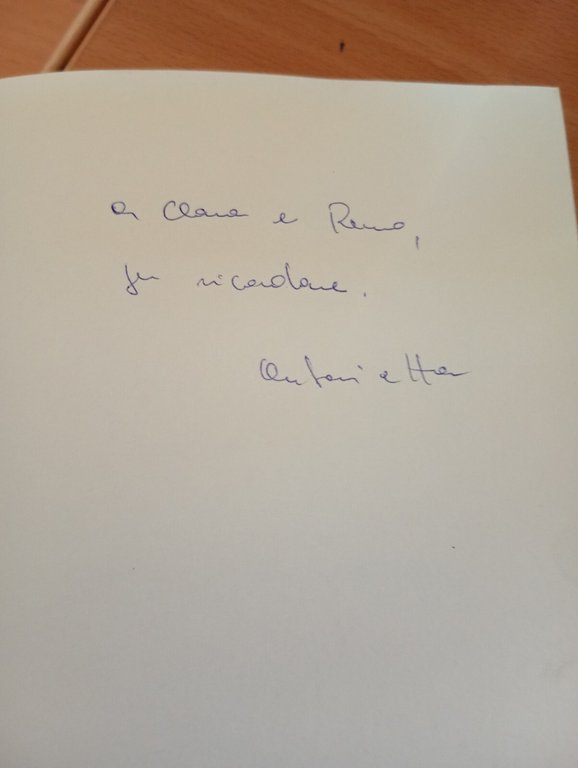 a Clara e Remo,
per ricordare.
Antonietta